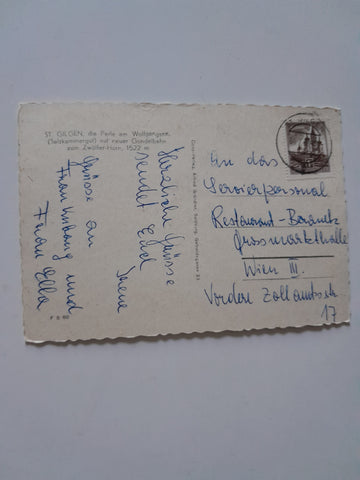 ST. GILGEN, die Perle am Wolfgangsee,
(Salzkammergut) mit neuer Gondelbahn
zum Zwölfer-Horn, 1522 m
Herzliche Grüsse
sendet Euch
Irene
Grüsse an
Frau und
Frau Ella
F 5 60
An das
Servierpersonal
Restaurant
Grossmarkthalle
Wien III.
Vordere Zollamtsstr
17